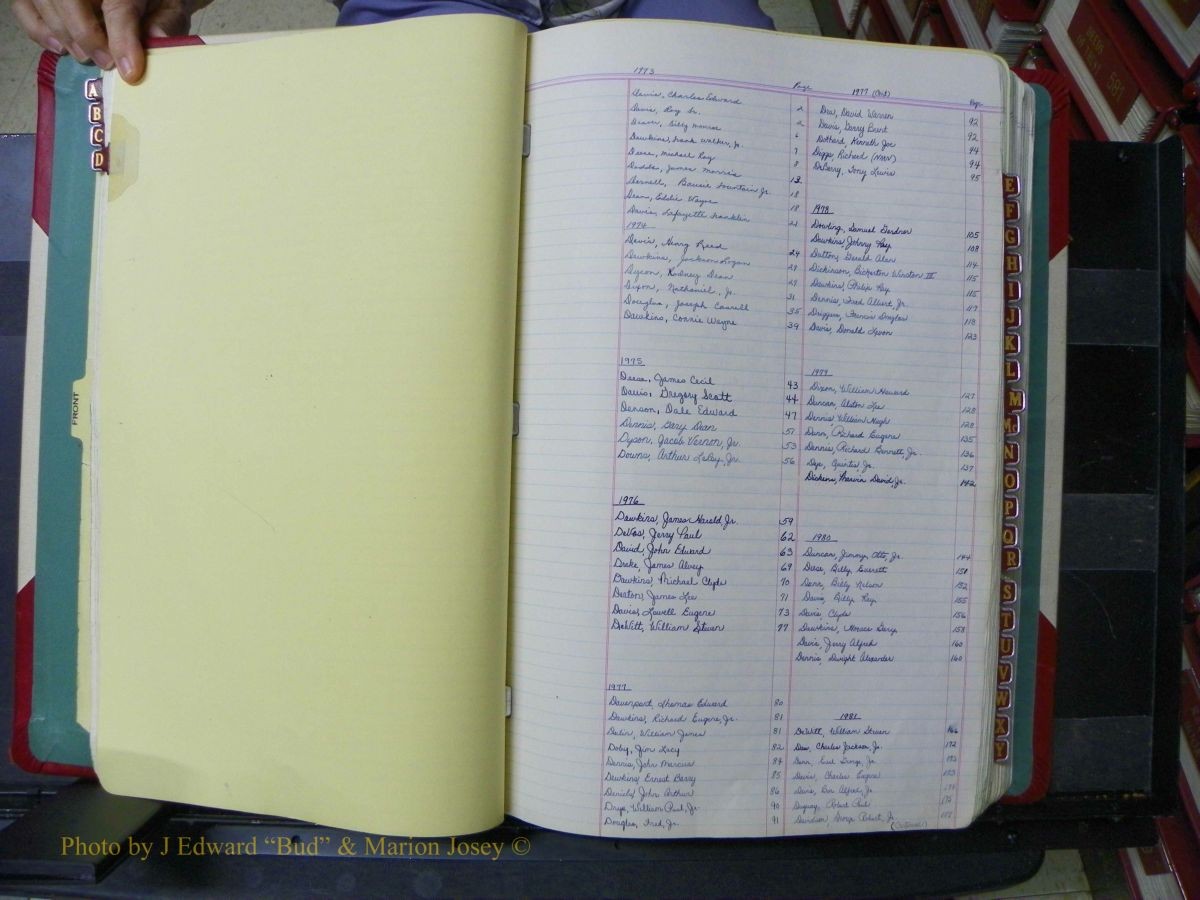 A
B
C
D
FRONT
1973
Page
Davis, Charles Edward 2
Davis, Roy Sr. 2
Deaver, Billy Monroe 6
Dawkins, Frank Walker, Jr. 7
Deese, Michael Ray 8
Dodds, James Morris 13
Darnell, Bowie Fountain Jr. 18
Dean, Eddie Wayne 18
Davis, Lafayette Franklin 21
1974
Davis, Henry Reed 24
Dawkins, Jackson Logan 29
Dyson, Rodney Dean 29
Dixon, Nathaniel, Jr. 31
Douglas, Joseph 35
Dawkins, Connie Wayne 39
1975
Deese, James Cecil 43
Davis, Gregory Scott 44
Denson, Dale Edward 47
Dennis, Gary Dean 51
Dyson, Jacob Vernon, Jr. 53
Downs, Arthur LeRoy, Jr. 56
1976
Dawkins, James Harold, Jr. 59
DeVos, Jerry Paul 62
David, John Edward 63
Drake, James Alvey 69
Dawkins, Michael Clyde 70
Deaton, James Lee 71
Davis, Lowell Eugene 73
DeWitt, William Steven 77
1977
Davenport, Thomas Edward 80
Dawkins, Richard Eugene, Jr. 81
William James 81
Doby, Jim Lacy 82
Dennis, John Marcus 84
Dawkins, Ernest Barry 85
Daniels, John Arthur 86
Drye, William Paul, Jr. 90
Douglas, Fred, Jr. 91
1977 (Con't)
Page
David Warren 92
Davis, Garry Brent 92
Dothard, Kenneth Joe 94
Diggs, Richard (NMN) 94
DeBerry, Tony Lewis 95
1978
Dowling, Samuel Gardner 105
Dawkins, Johnny Ray 108
Dutton, Gerald Alan 114
Dickinson, Bickerton Winston III 115
Dawkins, Philip Ray 115
Dennis, Fred Albert, Jr. 117
Driggers, Francis Douglas 118
Davis, Donald Levon 123
1979
Dixon, William Howard 127
Duncan, Alston Lee 128
Dennis, William Hugh 128
Dunn, Richard Eugene 135
Dennis, Richard Bennett, Jr. 136
Dye, Quintis, Jr. 137
Dickens, Marvin David, Jr. 142
1980
Duncan, Jimmy Otto, Jr. 144
Deese, Billy Everett 151
Dunn, Billy Nelson 152
Davis, Billy Ray 155
Davis, Clyde 156
Dawkins, Horace Gary 158
Davis, Jerry Alfred 160
Dennis, Dwight Alexander 160
1981
DeWitt, William Steven 166
Dew, Charles Jackson, Jr. 172
George, Jr. 173
Davis, Charles Eugene 173
Alfred, Jr.
Robert Paul 175
Davidson, George Robert, Jr.
E
F
G
H
I
J
K
L
M
Mc
N
O
P
Q
R
S
T
U
V
W
X
Y
DEEDS
581
Photo by J Edward “Bud” & Marion Josey ©